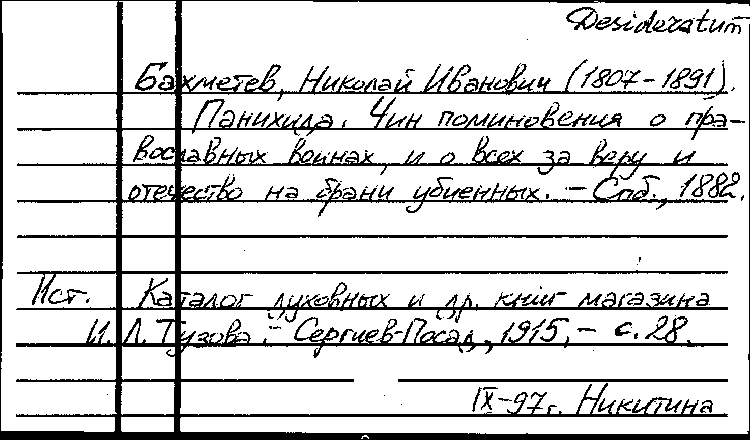 Desideratum
Бахметев, Николай Иванович (1807-1891).
Панихида. Чин поминовения о пра-
вославных воинах, и о всех за веру и
отечество на брани убиенных. - Спб., 1882.
Ист. Каталог духовных и др. книг магазина
И. Л. Тузова. - Сергиев-Посад, 1915, - с. 28.
IX-97г. Никитина